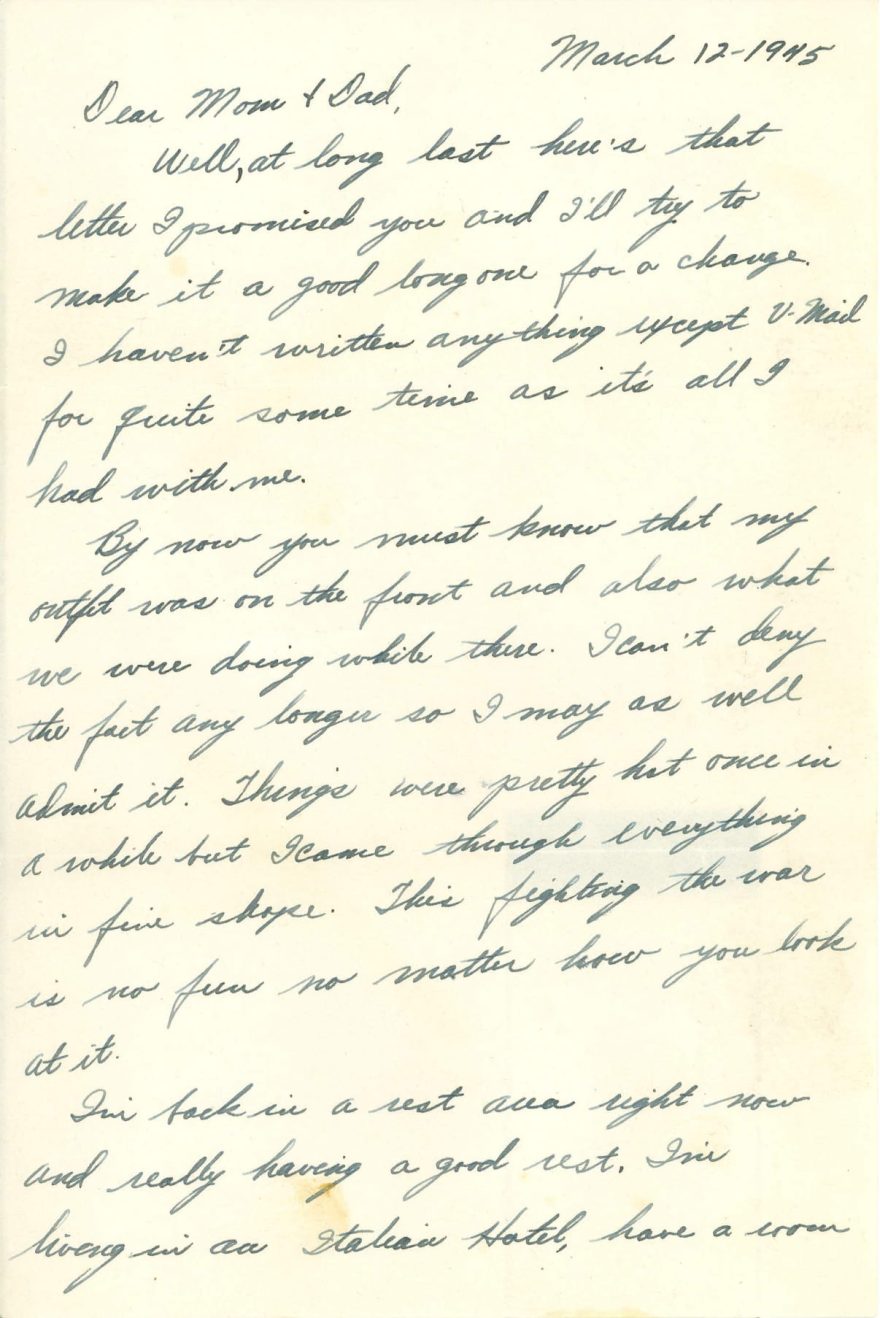 March 12-1945
Dear Mom & Dad,
Well, at long last here's that
letter I promised you and I'll try to
make it a good long one for a change.
I haven't written anything except V-Mail
for quite some time as it's all I
had with me.
By now you must know that my
outfit was on the front and also what
we were doing while there. I can't deny
the fact any longer so I may as well
admit it. Things were pretty hot once in
a while but I came through everything
in fine shape. This fighting the war
is no fun no matter how you look
at it.
I'm back in a rest area right now
and really having a good rest. I'm
living in an Italian Hotel, have a room